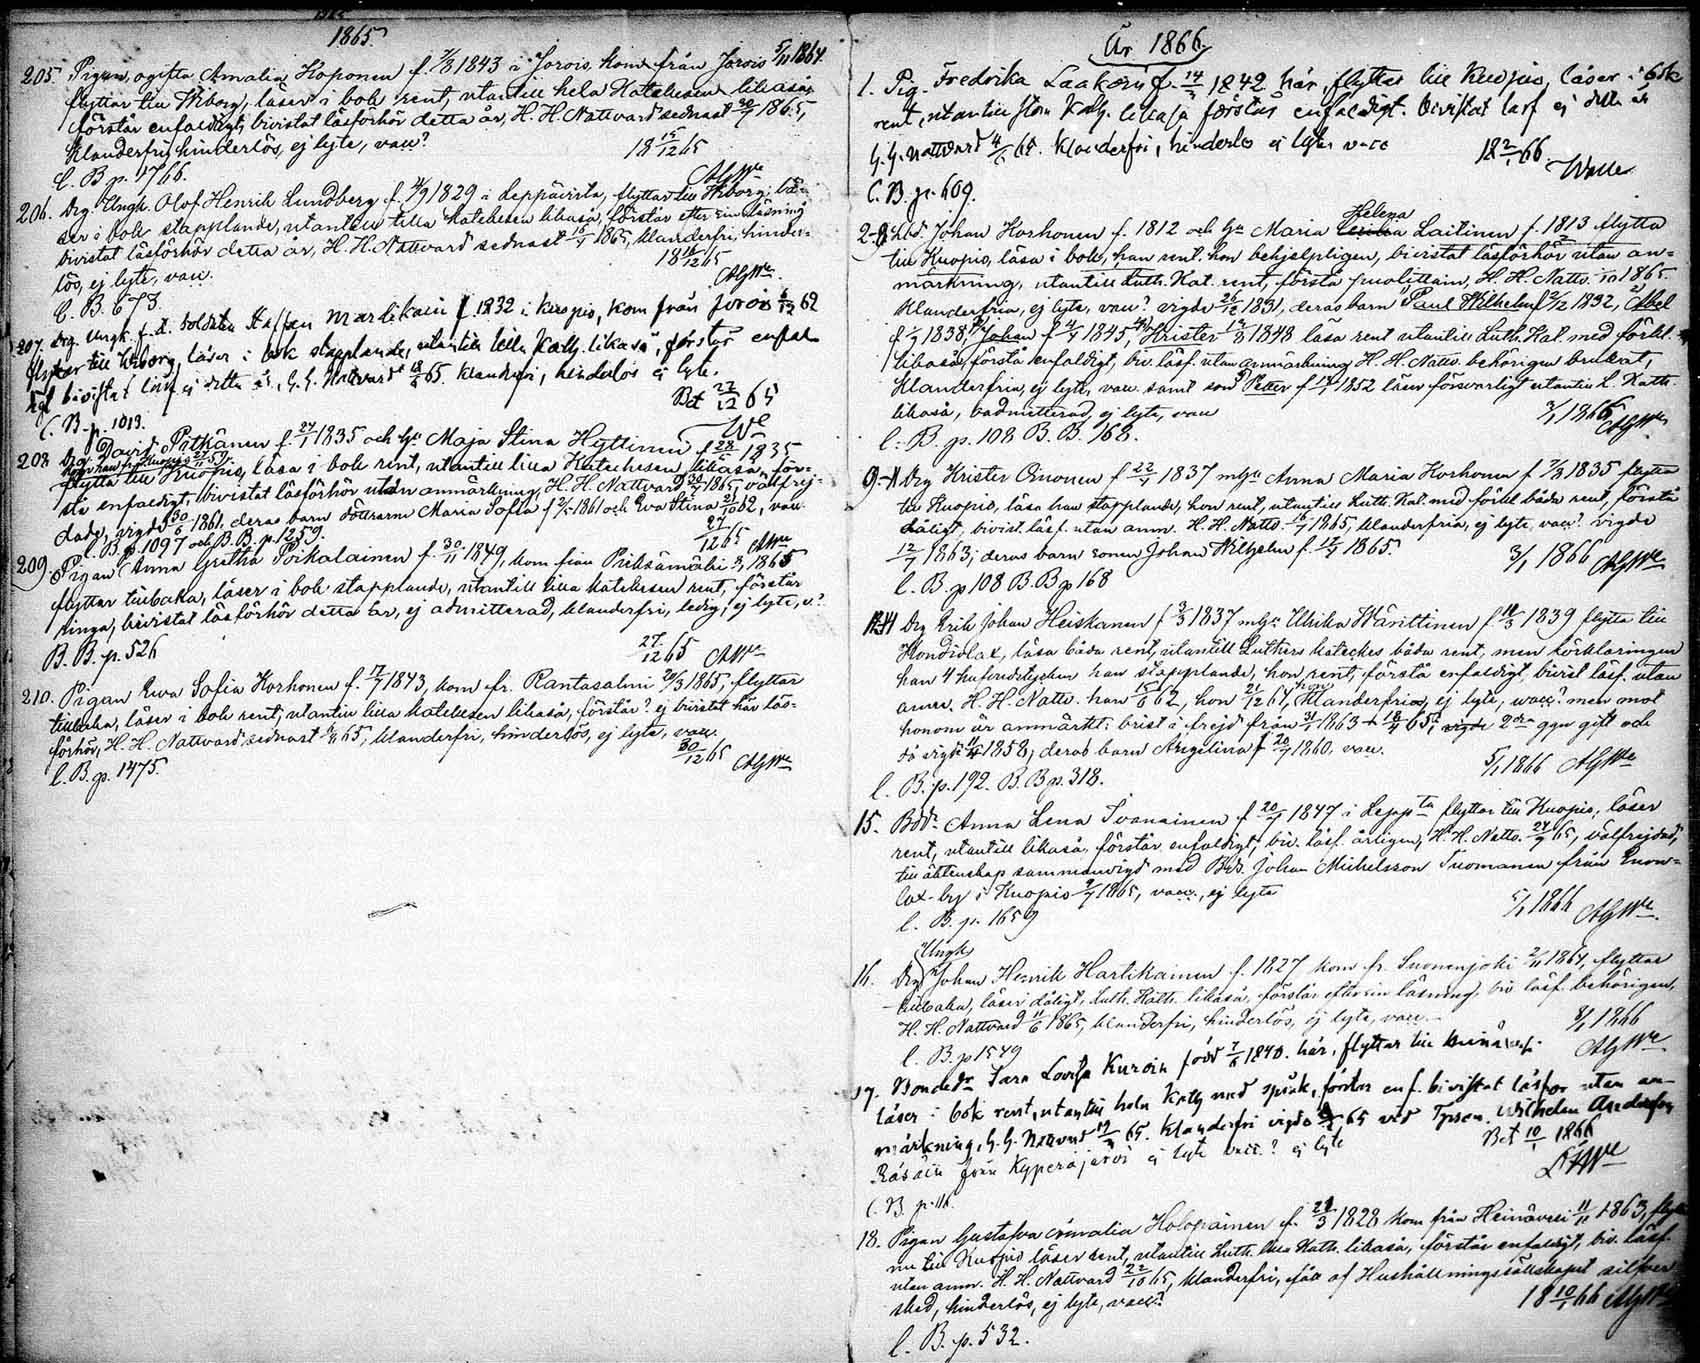 1865.
205. Pigan, ogifta Amalia Koponen f. 7/8 1843 i Jorois, kom från Jorois 5/11 1864.
flyttar till Wiborg, läser i bok rent, utantill hela Katekesen likaså,
förstår enfaldigt, bivistat läsförhör detta år, H. H. Nattvard sednast 30/7 1865,
klanderfri, hinderlös, ej lyte, vacc? 18 15/12 65
C. B. p. 1766. AGWe
206. Drg. Ungk. Olof Henrik Lundberg f. 1829 i Leppävirta, flyttar till Wiborg; lä-
ser i bok stapplande, utantill lilla katekesen likaså, förstår efter sin läsning
bivistat läsförhör detta år, H. H. Nattvard sednast 1865, klanderfri, hinder-
lös, ej lyte, vacc. 18 16/12 65
C. B. 673. AGWe
207. Drg Ungk. f. d. Soldaten Staffan Martikain f. 1832 i Kuopio, kom från Jorois 62
flyttar till Wiborg, läser i bok stapplande, utantill lilla Kath. likaså, förstår enfal-
digt bivistat läsf. ej detta år, H. H. Nattvard 65. klanderfri, hinderlös ej lyte.
C. B. p. 1013. Bet 27/12 65
We
208 Drg. David Pitkänen f. 27/1 1835 och h:u Maja Stina Hyttinen f. 28 1835
kom han fr. Kuopio
flytta till Kuopio, läsa i bok rent, utantill lilla Katechesen likaså, för-
stå enfaldigt, bivistat läsförhör utan anmärkning, H. H. Nattvard 1865, välfrej-
dade, vigde 30/6 1861. deras barn döttrarne Maria Sofia f. 1861 och Eva Stina 62, vacc.
C. B. p. 1097 och B. B. p. 1259. 27/12 65 AWe
209. Pigan Anna Gretha Poikalainen f. 30/11 1849, kom från Pieksämäki 1865
flyttar tillbaka, läser i bok stapplande, utantill lilla katekesen rent, förstår
ringa, bivistat läsförhör detta år, ej admitterad, klanderfri, ledig, ej lyte, v.?
B. B. p. 526 27/12 65 AWe
210. Pigan Ewa Sofia Korhonen f. 17/7 1843, kom fr. Rantasalmi 20/3 1865, flyttar
tillbaka, läser i bok rent, utantill lilla katekesen likaså, förstår? ej bivistat här läs-
förhör, H. H. Nattvard sednast 65, klanderfri, hinderlös, ej lyte, vacc.
C. B. p. 1475. 30/12 65 AGWe
År 1866.
1. Pig. Fredrika Laakoin f. 14/3 1842 här, flyttar till Kuopio, läser i bok
rent, utantill stora Kath. likaså förstår enfaldigt. bivistat läsf. ej detta år
H. H. Nattvard 65. klanderfri, hinderlös ej lyte vacc
C. B. p. 609. 18 2/1 66 Walle
Helena
2-8 Lbd. Johan Korhonen f. 1812 och h:u Maria Laitinen f. 1813 flytta
till Kuopio, läsa i bok, han rent, hon behjelpligen, bivistat läsförhör utan an-
märkning, utantill Luth. Kat. rent, förstå, H. H. Nattv. 1865.
klanderfria, ej lyte, vacc? vigde 26/12 1831, deras barn Paul Wilhelm 1832, Abel
f. 1838, Johan f. 1845, Krister 1848 läsa rent utantill Luth. Kat. med förkl.
likaså, förstå enfaldigt, biv. läsf. utan anmärkning H. H. Nattv. behörigen brukat,
klanderfria, ej lyte, vacc. samt son Petter f. 1852 läser försvarligt utantill L. Kath.
likaså, oadmitterad, ej lyte, vacc
C. B. p. 108 B. B. 168. 3/1 1866 AGWe
9-11 Drg Krister Oinonen f. 22/4 1837 m h:u Anna Maria Korhonen f. 7/8 1835 flytta
till Kuopio, läsa han stapplande, hon rent, utantill Luth. Kat. med förkl. båda rent, förstå
dåligt, bivist. läsf. utan anm. H. H. Nattv. 1865, klanderfria, ej lyte, vacc? vigde
12/7 1863; deras barn sonen Johan Wilhelm f. 12/7 1865.
C. B. p 108 B. B p 168 3/1 1866 AGWe
12-14 Drg Erik Johan Heiskanen f. 3/3 1837 m h:u Ulrika Wänttinen f. 1839 flytta till
Kondiolax, läsa båda rent, utantill Luthers kateches båda rent, men förklaringen
han 4 hufvudstycken han stapplande, hon rent, förstå enfaldigt, bivist läsf. utan
anm. H. H. Nattv. han 62, hon 21/12 64, hon klanderfria, ej lyte, vacc? men mot
honom är anmärkt: brist i frejd från 1863 65, vigde 2:dra ggn gift och
då vigd 1858, deras barn Angelina f. 20 1860, vacc.
C. B. p. 192. B. B p. 318. 5/1 1866 AGWe
15. Bdr. Anna Lena Ivanainen f. 20 1847 i Lepp:ta flyttar till Kuopio, läser
rent, utantill likaså, förstår enfaldigt, biv. läsf. årligen, H. H. Nattv. 65, välfrejdad,
till äktenskap sammanvigd med Bds. Johan Michelsson Tuomanen från
lax by i Kuopio 1865, vacc., ej lyte
C. B. p. 1659 5/1 1866 AGWe
Ungk
16. Drg Johan Henrik Hartikainen f. 1827 kom fr. Suonenjoki 1864, flyttar
tillbaka, läser dåligt, Luth. Kath. likaså, förstår efter sin läsning, biv läsf. behörigen,
H. H. Nattvard 11/6 1865, klanderfri, hinderlös, ej lyte, vacc.
C. B. p 1549 8/1 1866 AGWe
17. Bondedr Sara Lovisa Kuroin född 1840. här, flyttar till
läser i bok rent, utantill hela Kath med språk, förstår enf. bivistat läsför utan an-
märkning, H. H. Nattvard 65. klanderfri vigde 65 vid Wilhelm Anderson
Räsäin från Kyperäjärvi ej lyte vacc? ej lyte Bet 10/1 1866
C. B. p. 116.
18. Pigan Gustafva Amalia Holopainen f. 22/3 1828 kom från Heinävesi 11/11 1863, flytt
nu till Kuopio läser rent, utantill Luth. lilla Kath. likaså, förstår enfaldigt, biv. läsf.
utan anm. H. H. Nattvard 22/10 65, klanderfri, af Hushållningssällskapet silfver
sked, hinderlös, ej lyte, vacc?
C. B. p. 532. 18 10/1 66 AGWe